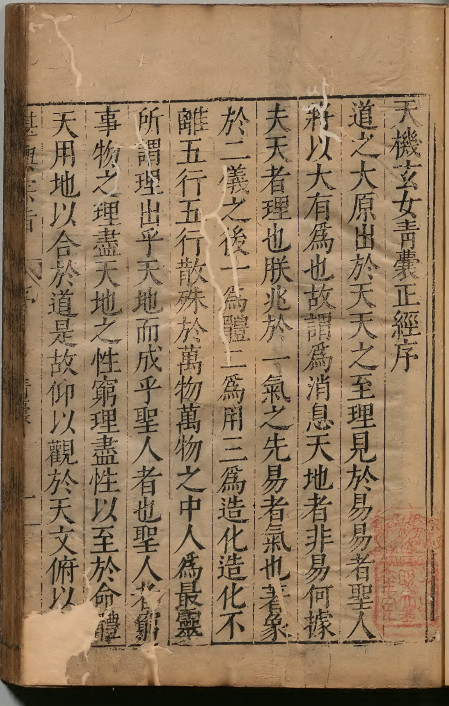 天機玄女青囊正經序
道之大原出於天天之至理見於易易者聖人
將以大有爲也故謂爲消息天地者非易何據
夫天者理也朕兆於一氣之先易者氣也著象
於二儀之後一爲體二爲用三爲造化造化不
離五行五行散殊於萬物萬物之中人爲最靈
所謂理出乎天地而成乎聖人者也聖人者窮
事物之理盡天地之性窮理盡性以至於命體
天用地以合於道是故仰以觀於天文俯以